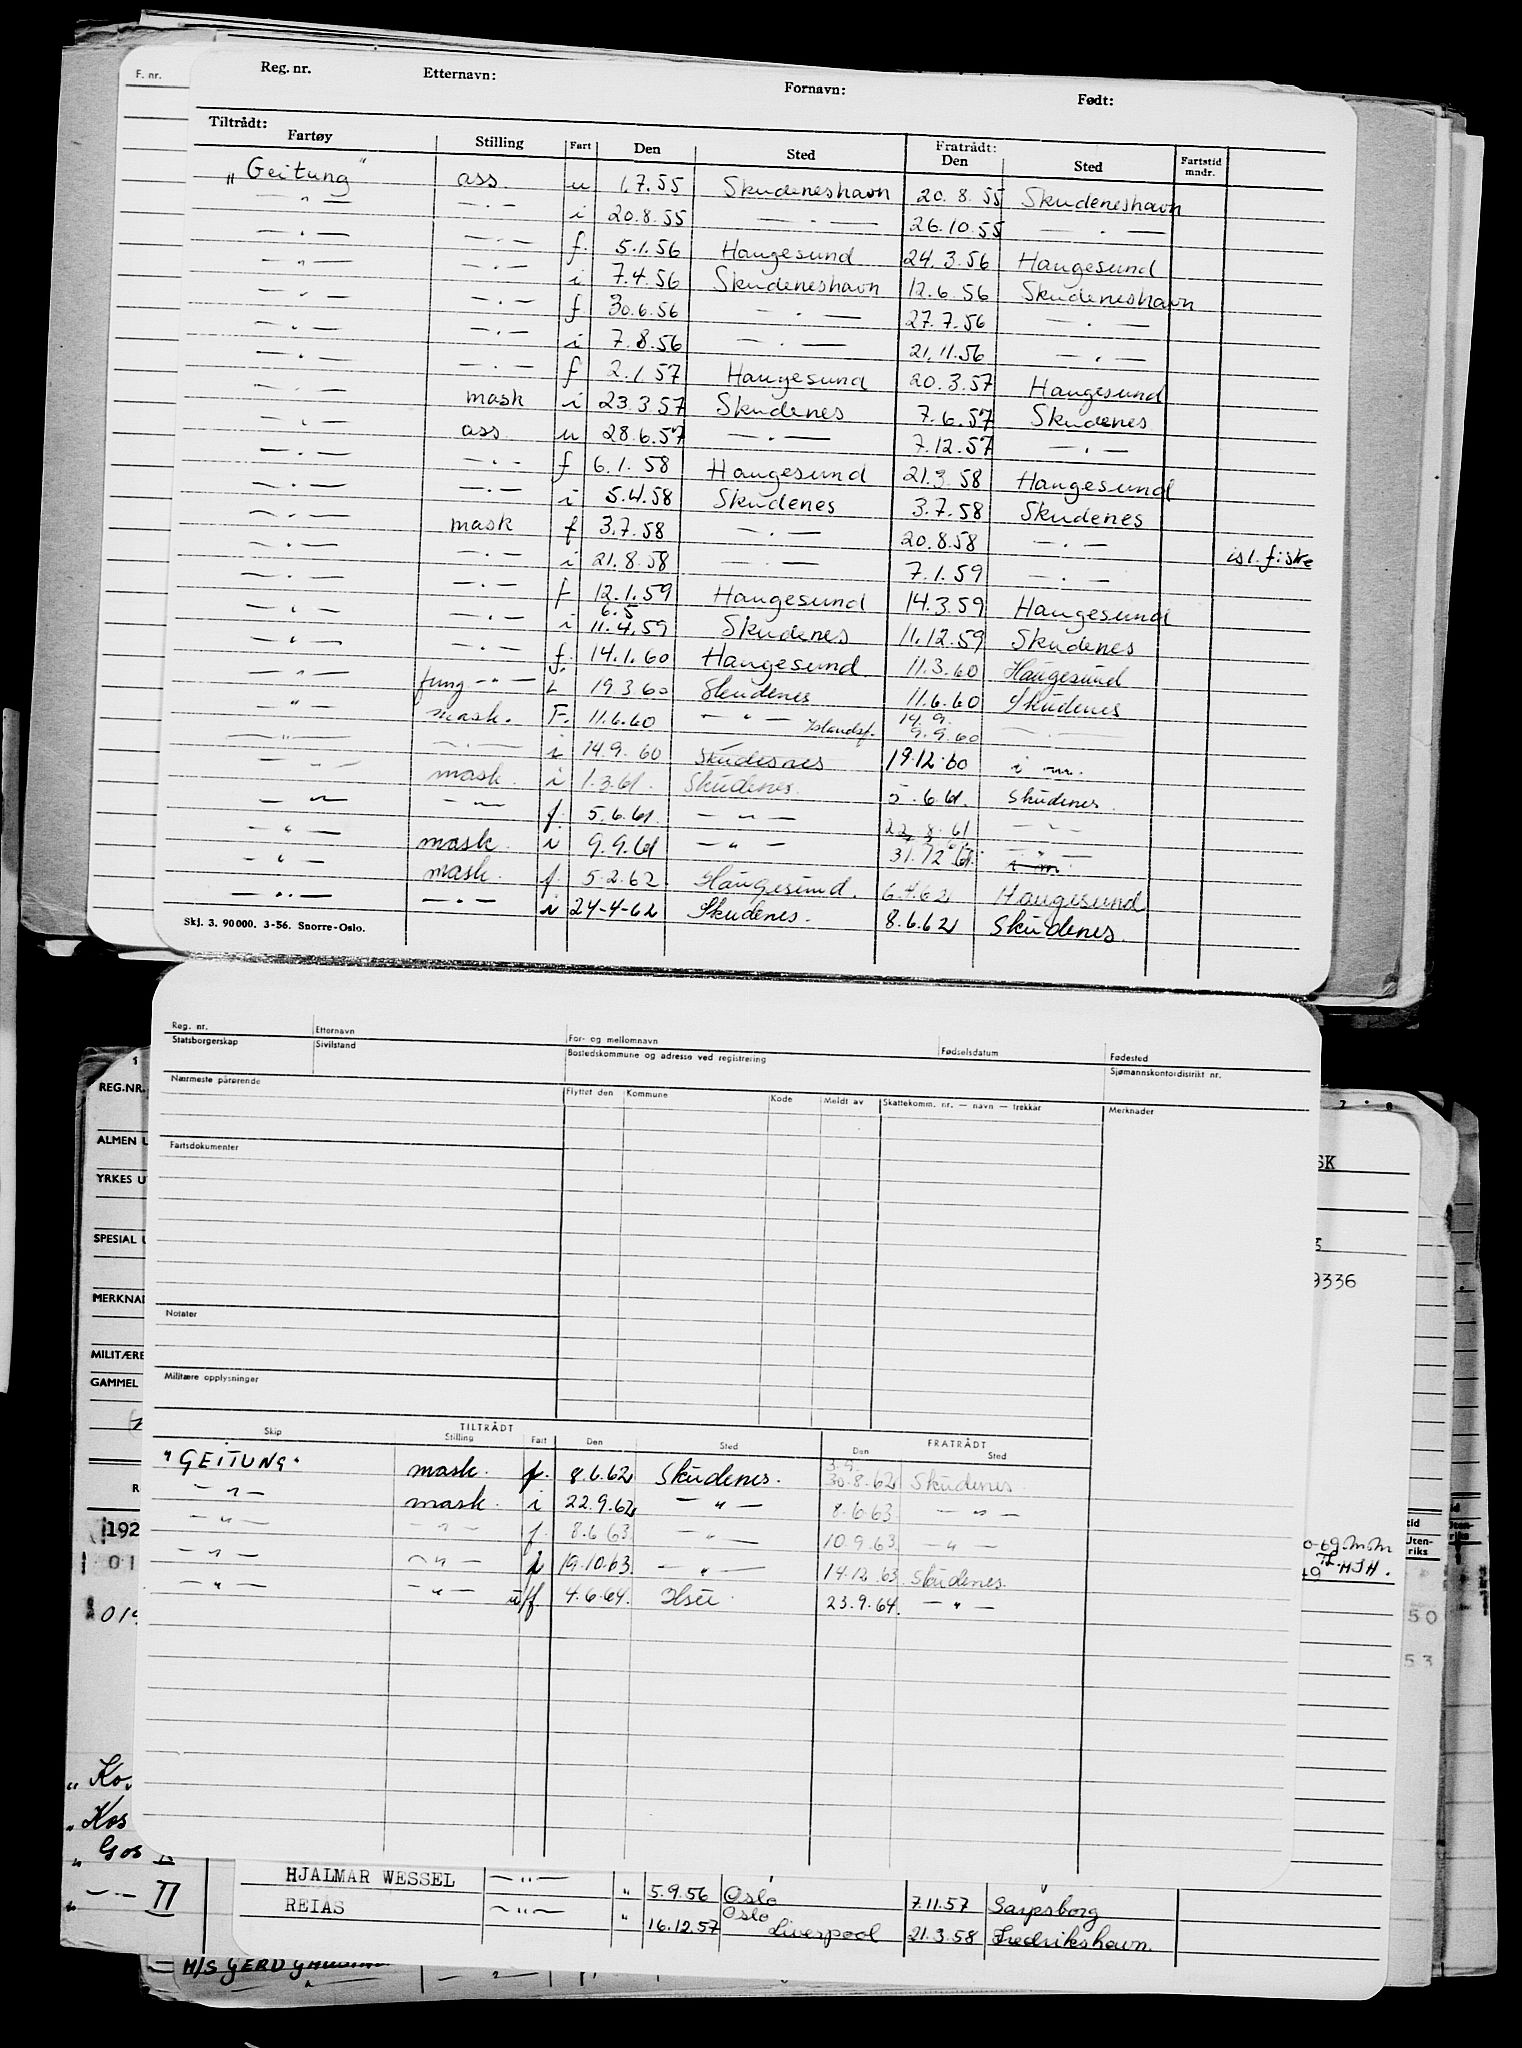 F. nr.
Reg. nr. Etternavn: Fornavn: Født:
Tiltrådt: Fratrådt:
Fartøy Stilling Fart Den Sted Den Sted Fartstid mndr.
„Geitung" ass u 1.7.55 Skudeneshavn 20.8.55 Skudeneshavn
— " — — . — i 20.8.55 — . — 26.10.55 — . —
— " — — . — f. 5.1.56 Haugesund 24.3.56 Haugesund
— " — — . — i 7.4.56 Skudeneshavn 12.6.56 Skudeneshavn
— " — — . — f. 30.6.56 — . — 27.7.56 — . —
— " — — . — i 7.8.56 — . — 21.11.56 — . —
— " — — . — f 2.1.57 Haugesund 20.3.57 Haugesund
— . — mask i 23.3.57 Skudenes 7.6.57 Skudenes
— . — ass. u 28.6.57 — . — 7.12.57 — . —
— . — — . — f 6.1.58 Haugesund 21.3.58 Haugesund
— . — — . — i 5.4.58 Skudenes 3.7.58 Skudenes
— . — mask f 3.7.58 — . — 20.8.58 — . — isl. fiske
— . — — . — i 21.8.58 — . — 7.1.59 — . —
— . — — . — f 12.1.59 Haugesund 14.3.59 Haugesund
6.5
— . — — . — i 11.4.59 Skudenes 11.12.59 Skudenes
— " — — . — f. 14.1.60 Haugesund 11.3.60 Haugesund
— " — fung — " — i 19 3.60 Skudenes 11.6.60 Skudenes
— " — mask. F. 11.6.60 — " — Islandsf. 14.9. 9.9.60 — . —
— " — — . — i 14.9.60 Skudesnes 19.12.60 i m.
— " — mask. i 1.3.61. Skudenes. 5.6.61. Skudenes.
— " — — " — f. 5.6.61. — " — 22.8.61 — " —
— " — mask. i 9.9.61 — " — 31.12.61. i m.
— " — mask. f. 5.2.62. Haugesund. 6.4.62 Haugesund
— . — — . — i 24-4-62 Skudenes. 8.6.62 Skudenes.
Skj. 3. 90000. 3-56. Snorre-Oslo.
Reg. nr. Etternavn For- og mellomnavn Fødselsdatum Fødested
Statsborgerskap Sivilstand Bostedskommune og adresse ved registrering Sjømannskontordistrikt nr.
Nærmeste pårørende Flyttet den Kommune Kode Meldt av Skattekomm. nr. — navn — trekkår Merknader
Fartsdokumenter
Notater
Militære opplysninger
TILTRÅDT FRATRÅDT
Skip Stilling Fart Den Sted Den Sted
"GEITUNG" mask. f. 8.6.62 Skudenes. 3.9. 30.8.62 Skudenes.
— " — mask. i 22.9.62 — " — 8.6.63 — " —
— " — — " — f. 8.6.63 — " — 10.9.63 — " —
— " — — " — i 19.10.63 — " — 14.12.63 Skudenes.
— " — — " — i/f 4.6.64. 23.9.64. — " —
REG.NR.
ALMEN U
YRKES U
SPESIAL U
MERKNA
MILITÆRE
GAMMEL
192
01
019
SK
9336
0-69 M M
TL. HJH.
Uten-
riks
50
53
„ Ko.
„ Kos
„ Gos II
„ — . — II
HJALMAR WESSEL — " — " 5.9.56 Oslo 7.11.57 Sarpsborg
REIAS — " — " 16.12.57 Oslo Liverpool 21.3.58 Fredrikshavn.
M/S GERD